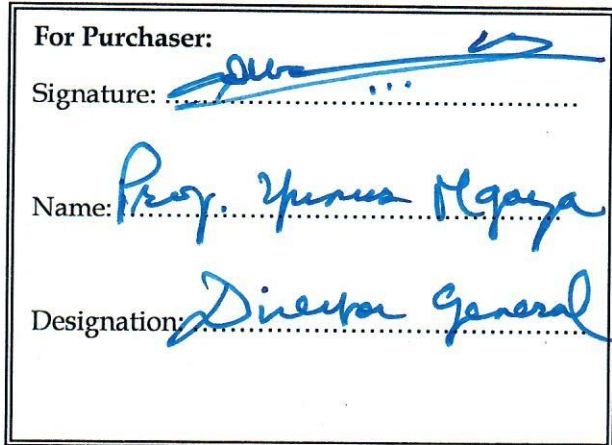 For Purchaser:
Signature: ................................
Name: Prof. Yunus Mgaya
Designation: Director General